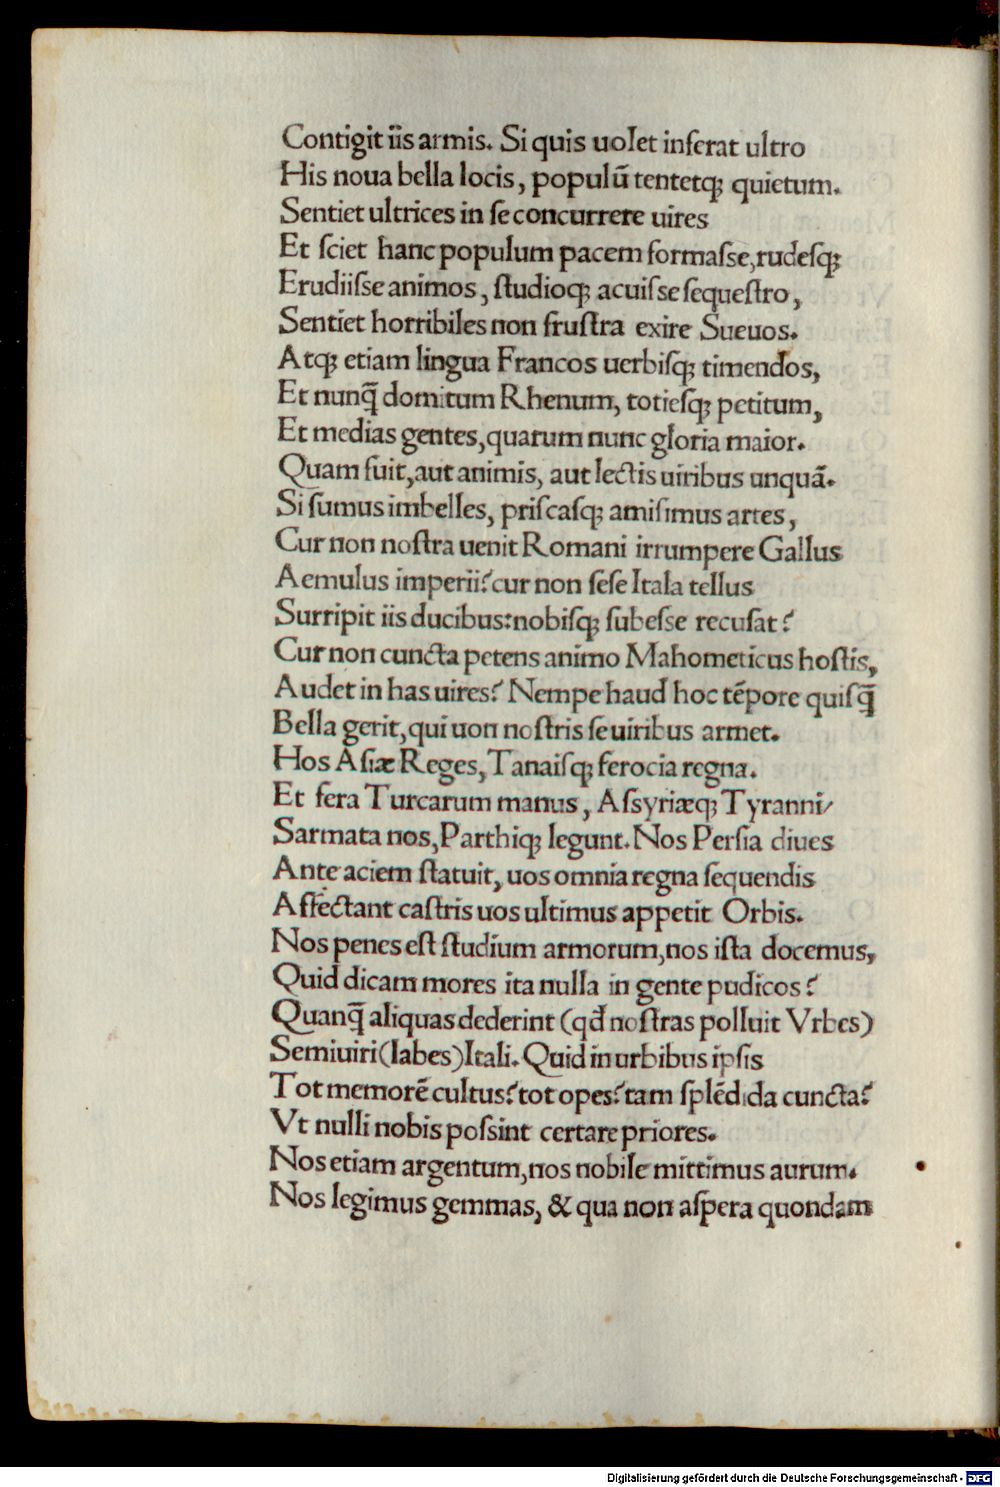 Contigit iis armis. Si quis uolet inferat ultro
His noua bella locis, populũ tentetqꝫ quietum.
Sentiet ultrices in se concurrere uires
Et ſciet hanc populum pacem formaſſe, rudeſqꝫ
Erudiiſſe animos, ſtudioqꝫ acuiſſe ſequeſtro,
Sentiet horribiles non fruſtra exire Sueuos.
Atqꝫ etiam lingua Francos uerbiſqꝫ timendos,
Et nunq̃ domitum Rhenum, totieſqꝫ petitum,
Et medias gentes, quarum nunc gloria maior.
Quam fuit, aut animis, aut lectis uiribus unquã.
Si ſumus imbelles, priſcaſqꝫ amiſimus artes,
Cur non noſtra uenit Romani irrumpere Gallus
Aemulus imperii? cur non ſeſe Itala tellus
Surripit iis ducibus: nobiſqꝫ ſubeſſe recuſat?
Cur non cuncta petens animo Mahometicus hoſtis,
Audet in has uires? Nempe haud hoc tẽpore quiſq̃
Bella gerit, qui uon noſtris ſe uiribus armet.
Hos Aſiæ Reges, Tanaiſqꝫ ferocia regna.
Et fera Turcarum manus, Aſſyriæqꝫ Tyranni/
Sarmata nos, Parthiqꝫ legunt. Nos Perſia diues
Ante aciem ſtatuit, uos omnia regna ſequendis
Affectant caſtris uos ultimus appetit Orbis.
Nos penes eſt ſtudium armorum, nos iſta docemus,
Quid dicam mores ita nulla in gente pudicos?
Quanq̃ aliquas dederint (qđ noſtras polluit Vrbes)
Semiuiri (labes) Itali. Quid in urbibus ipſis
Tot memorẽ cultus? tot opes? tam ſplẽdida cuncta?
Vt nulli nobis poſſint certare priores.
Nos etiam argentum, nos nobile mittimus aurum.
Nos legimus gemmas, & qua non aſpera quondam
Digitalisierung gefördert durch die Deutsche Forschungsgemeinschaft - DFG